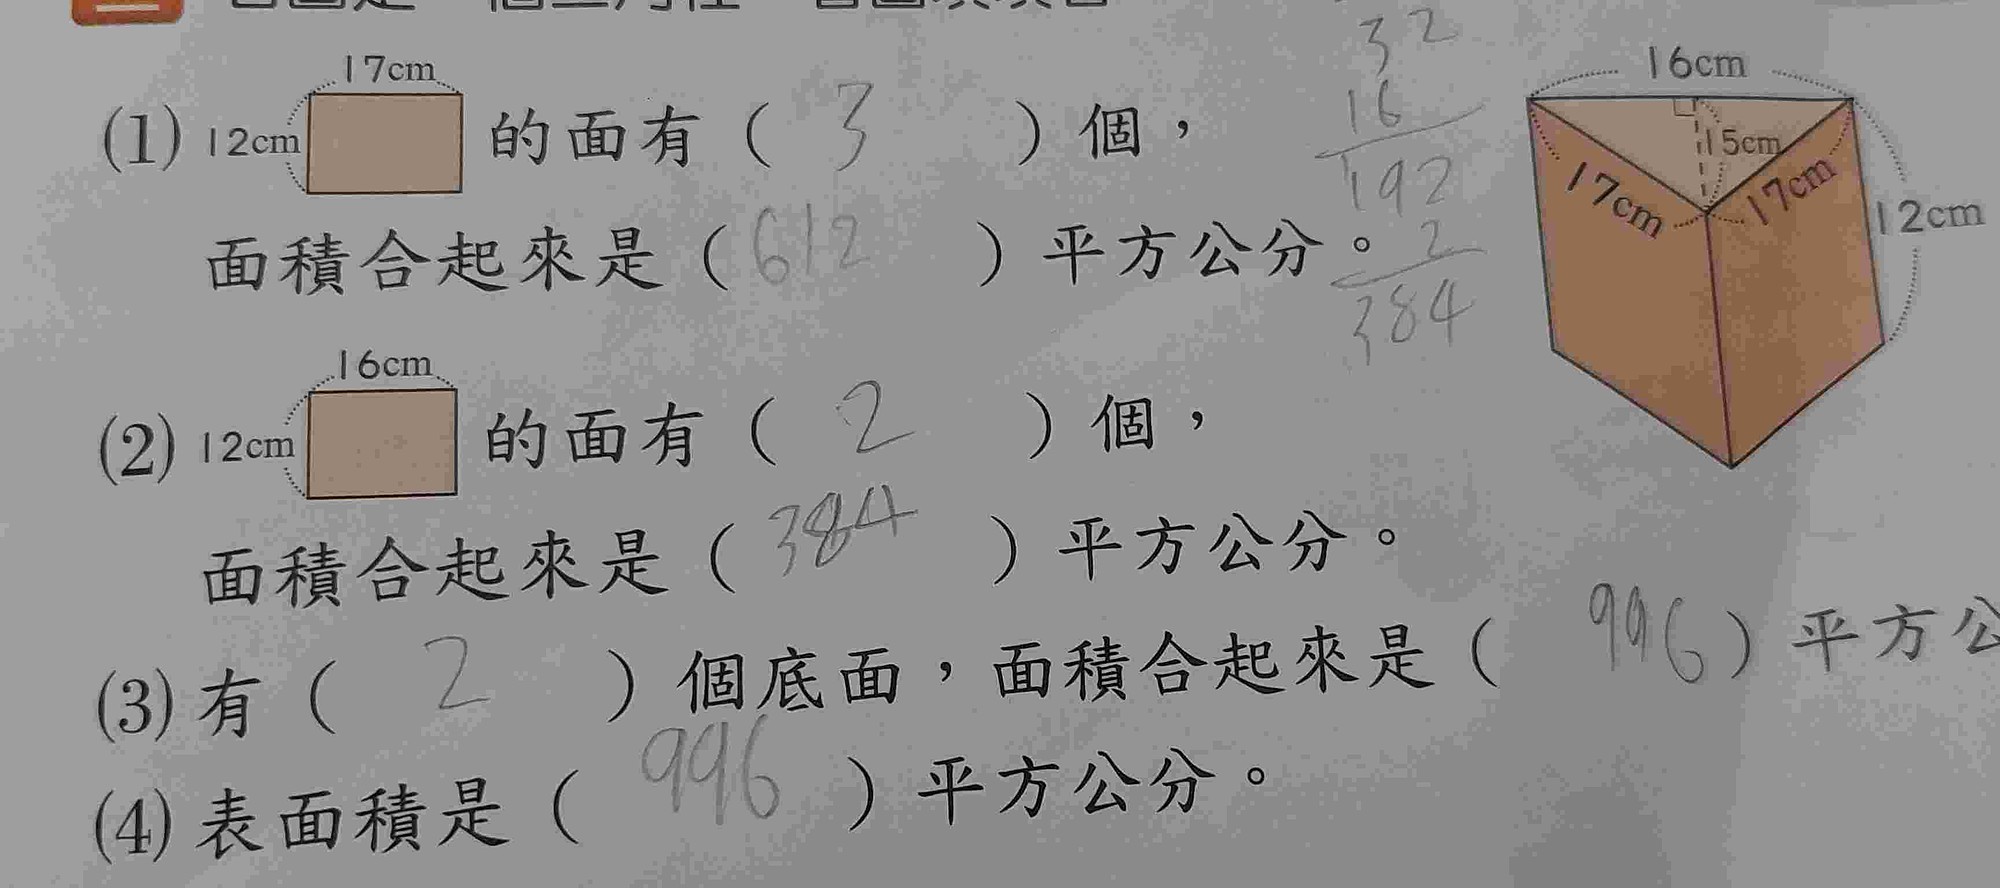 17cm
(1) 12cm 的面有( 3 )個，
面積合起來是( 612 )平方公分。
32
16
192
2
384
16cm
15cm
17cm 17cm
12cm
16cm
(2) 12cm 的面有( 2 )個，
面積合起來是( 384 )平方公分。
(3) 有( 2 )個底面，面積合起來是( 996 )平方公
(4) 表面積是( 996 )平方公分。